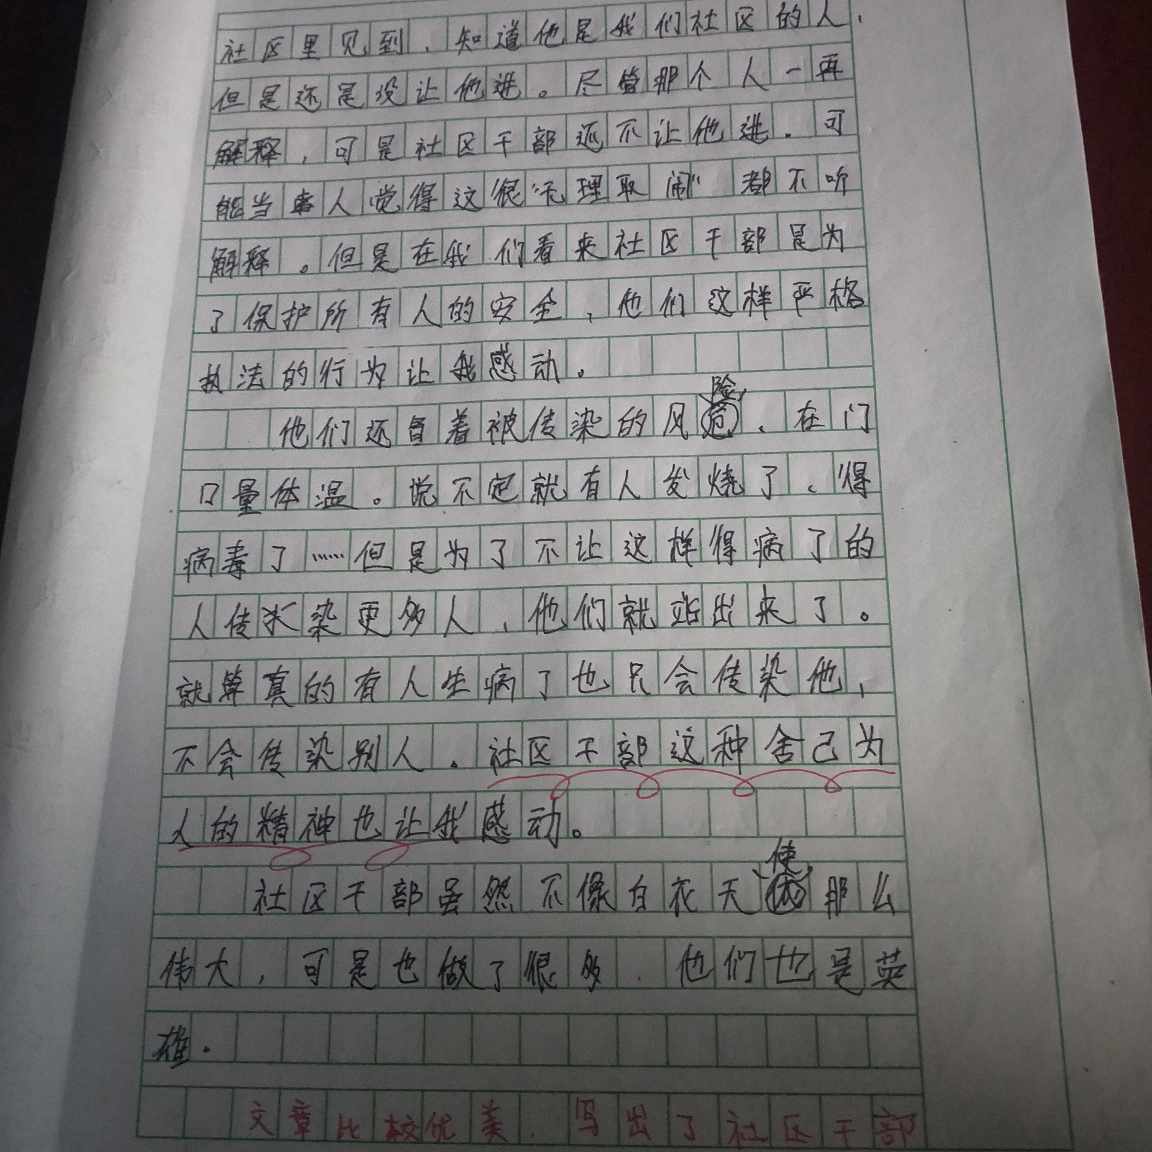 社区里见到，知道他是我们社区的人，
但是还是没让他进。尽管那个人一再
解释，可是社区干部还不让他进。可
能当事人觉得这很“无理取闹”都不听
解释。但是在我们看来社区干部是为
了保护所有人的安全，他们这样严格
执法的行为让我感动。
险
他们还冒着被传染的风危，在门
口量体温。说不定就有人发烧了、得
病毒了……但是为了不让这样得病了的
人传染更多人，他们就站出来了。
就算真的有人生病了也只会传染他，
不会传染别人。社区干部这种舍己为
人的精神也让我感动。
使
社区干部虽然不像白衣天那么
伟大，可是也做了很多，他们也是英
雄。
文章比较优美，写出了社区干部